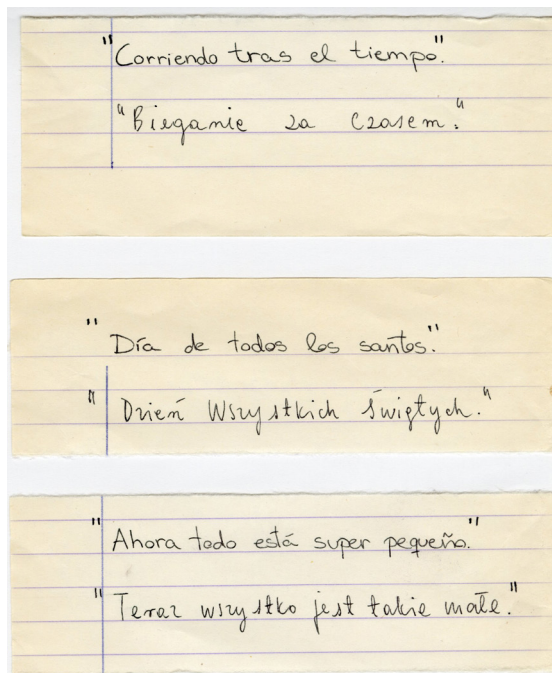 "Corriendo tras el tiempo".
"Bieganie za czasem."
"Día de todos los santos."
"Dzień Wszystkich Świętych."
"Ahora todo está super pequeño."
"Teraz wszystko jest takie małe."